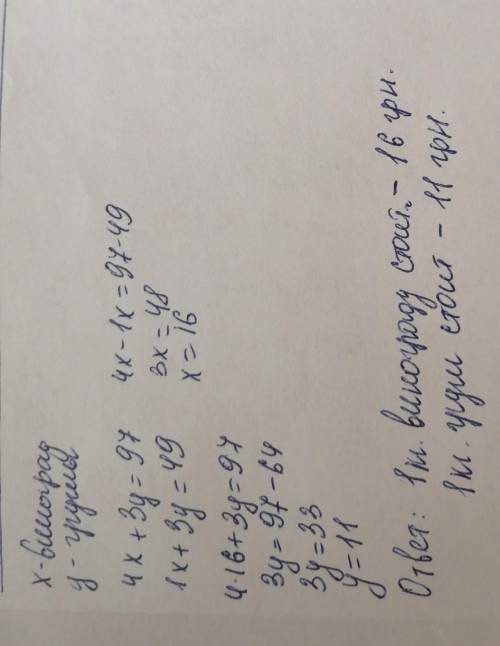 x - виноград
y - груши
4x + 3y = 97
1x + 3y = 49
4x - 1x = 97 - 49
3x = 48
x = 16
4·16 + 3y = 97
3y = 97 - 64
3y = 33
y = 11
Ответ: 1 кг. винограду стоит - 16 грн.
1 кг. груши стоит - 11 грн.